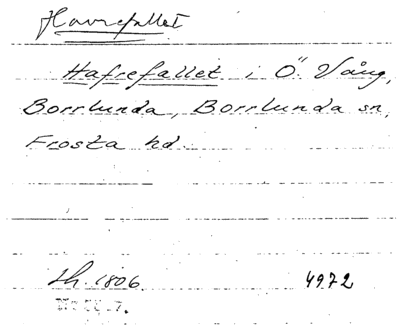 Havrefallet
Hafrefallet i Ö. Vång,
Borrlunda, Borrlunda sn,
Frosta hd.
Lh. 1806. 4972